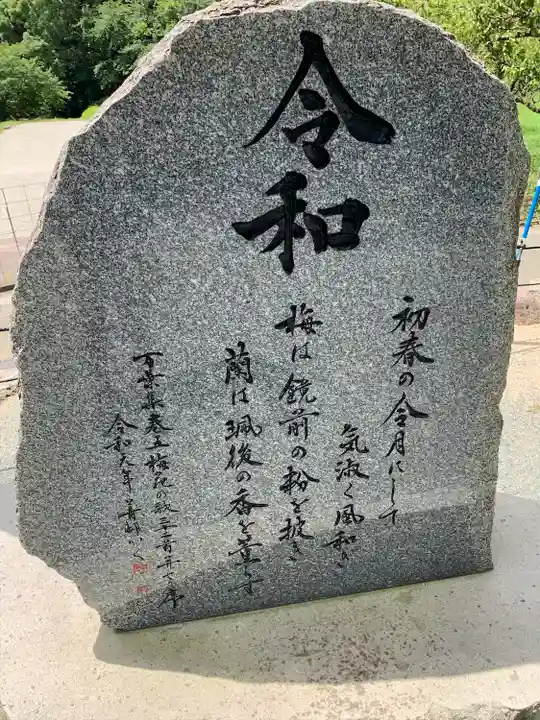 令和
初春の令月にして
気淑く風和ぎ
梅は鏡前の粉を披き
蘭は珮後の香を薫す
万葉集巻五梅花の歌三十二首并せて序
令和元年